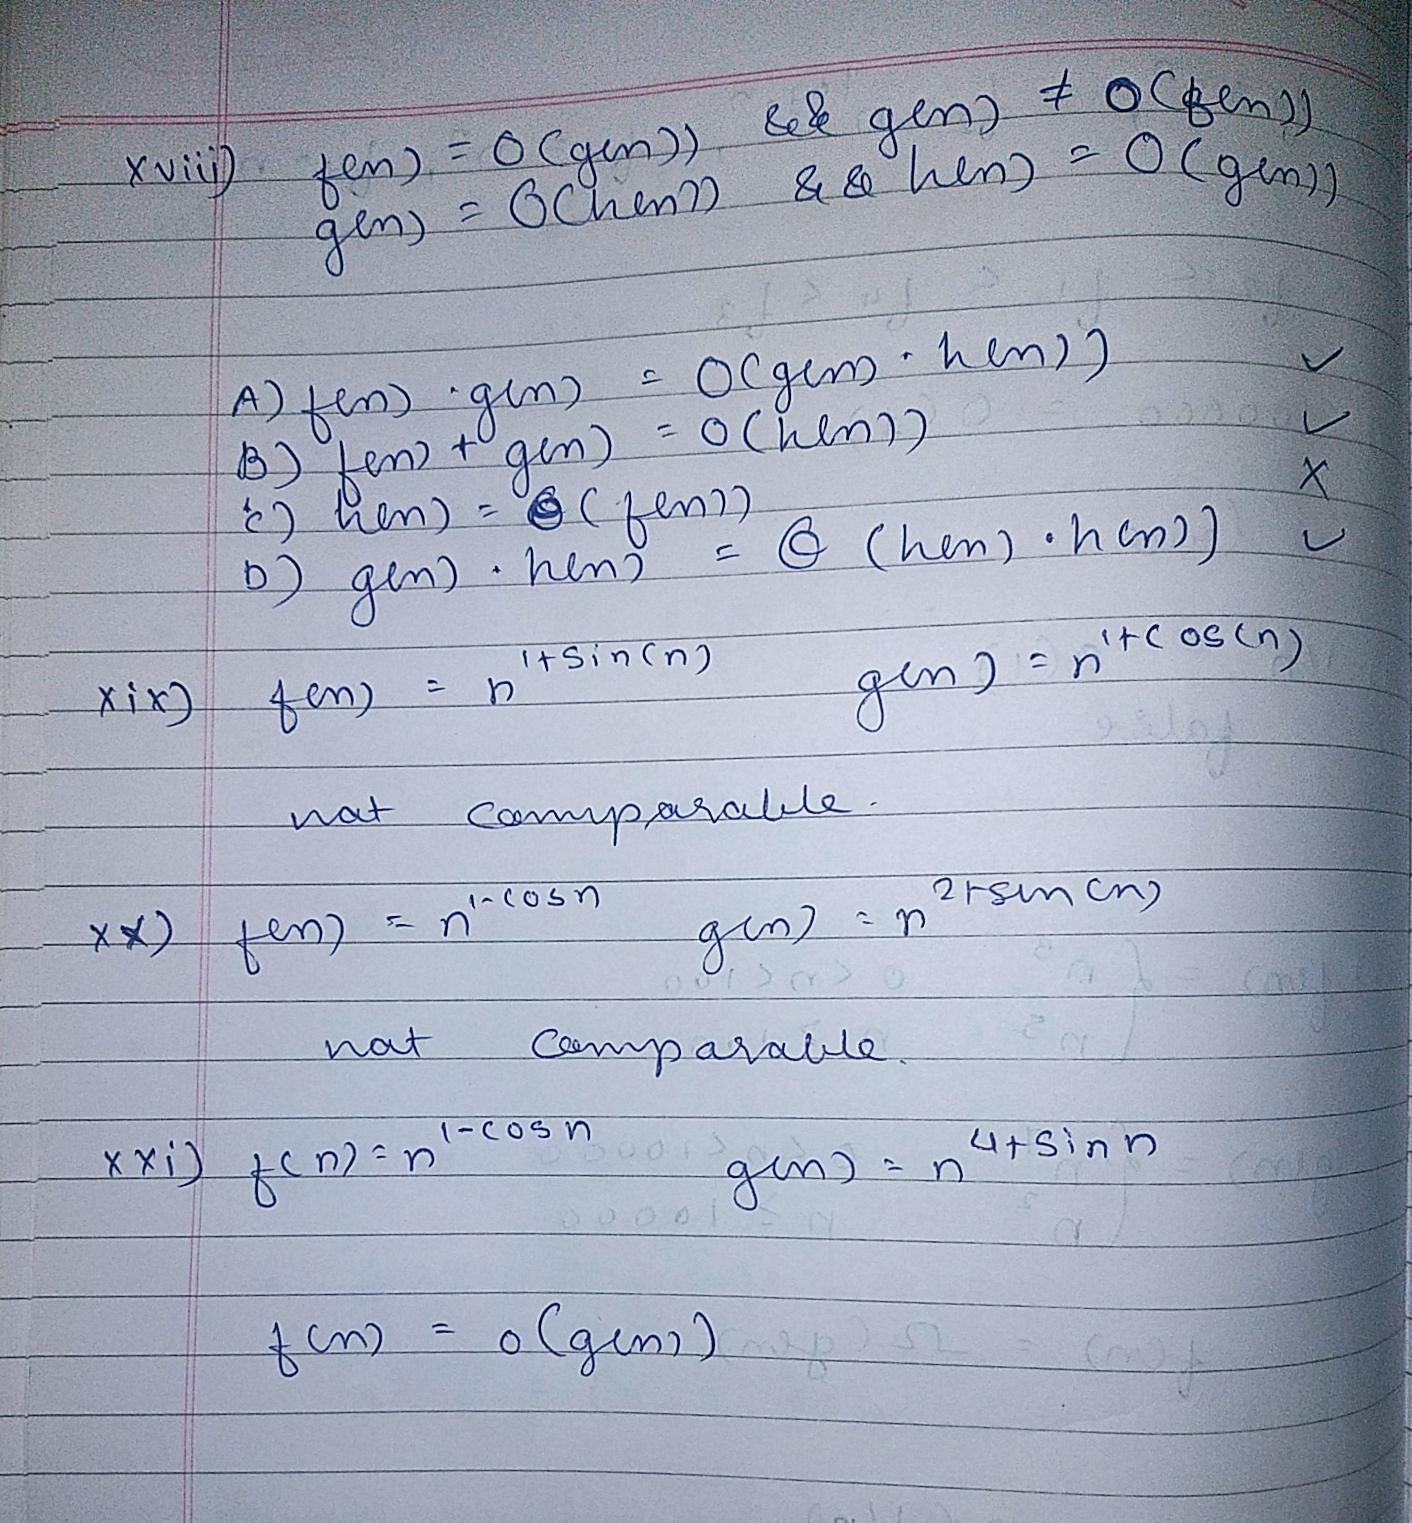 xviii) f(n) = O(g(n)) && g(n) ≠ O(f(n))
g(n) = O(h(n)) && h(n) = O(g(n))
A) f(n) · g(n) = O(g(n) · h(n)) ✓
B) f(n) + g(n) = O(h(n)) ✓
C) h(n) = Θ(f(n)) X
D) g(n) · h(n) = Θ (h(n) · h(n)) ✓
xix) f(n) = n^1+sin(n) g(n) = n^1+cos(n)
not comparable.
xx) f(n) = n^1-cosn g(n) = n^2+sin(n)
not comparable.
xxi) f(n) = n^1-cosn g(n) = n^4+sinn
f(n) = o(g(n))